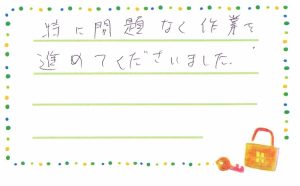 特に問題なく作業を
進めてくださいました.